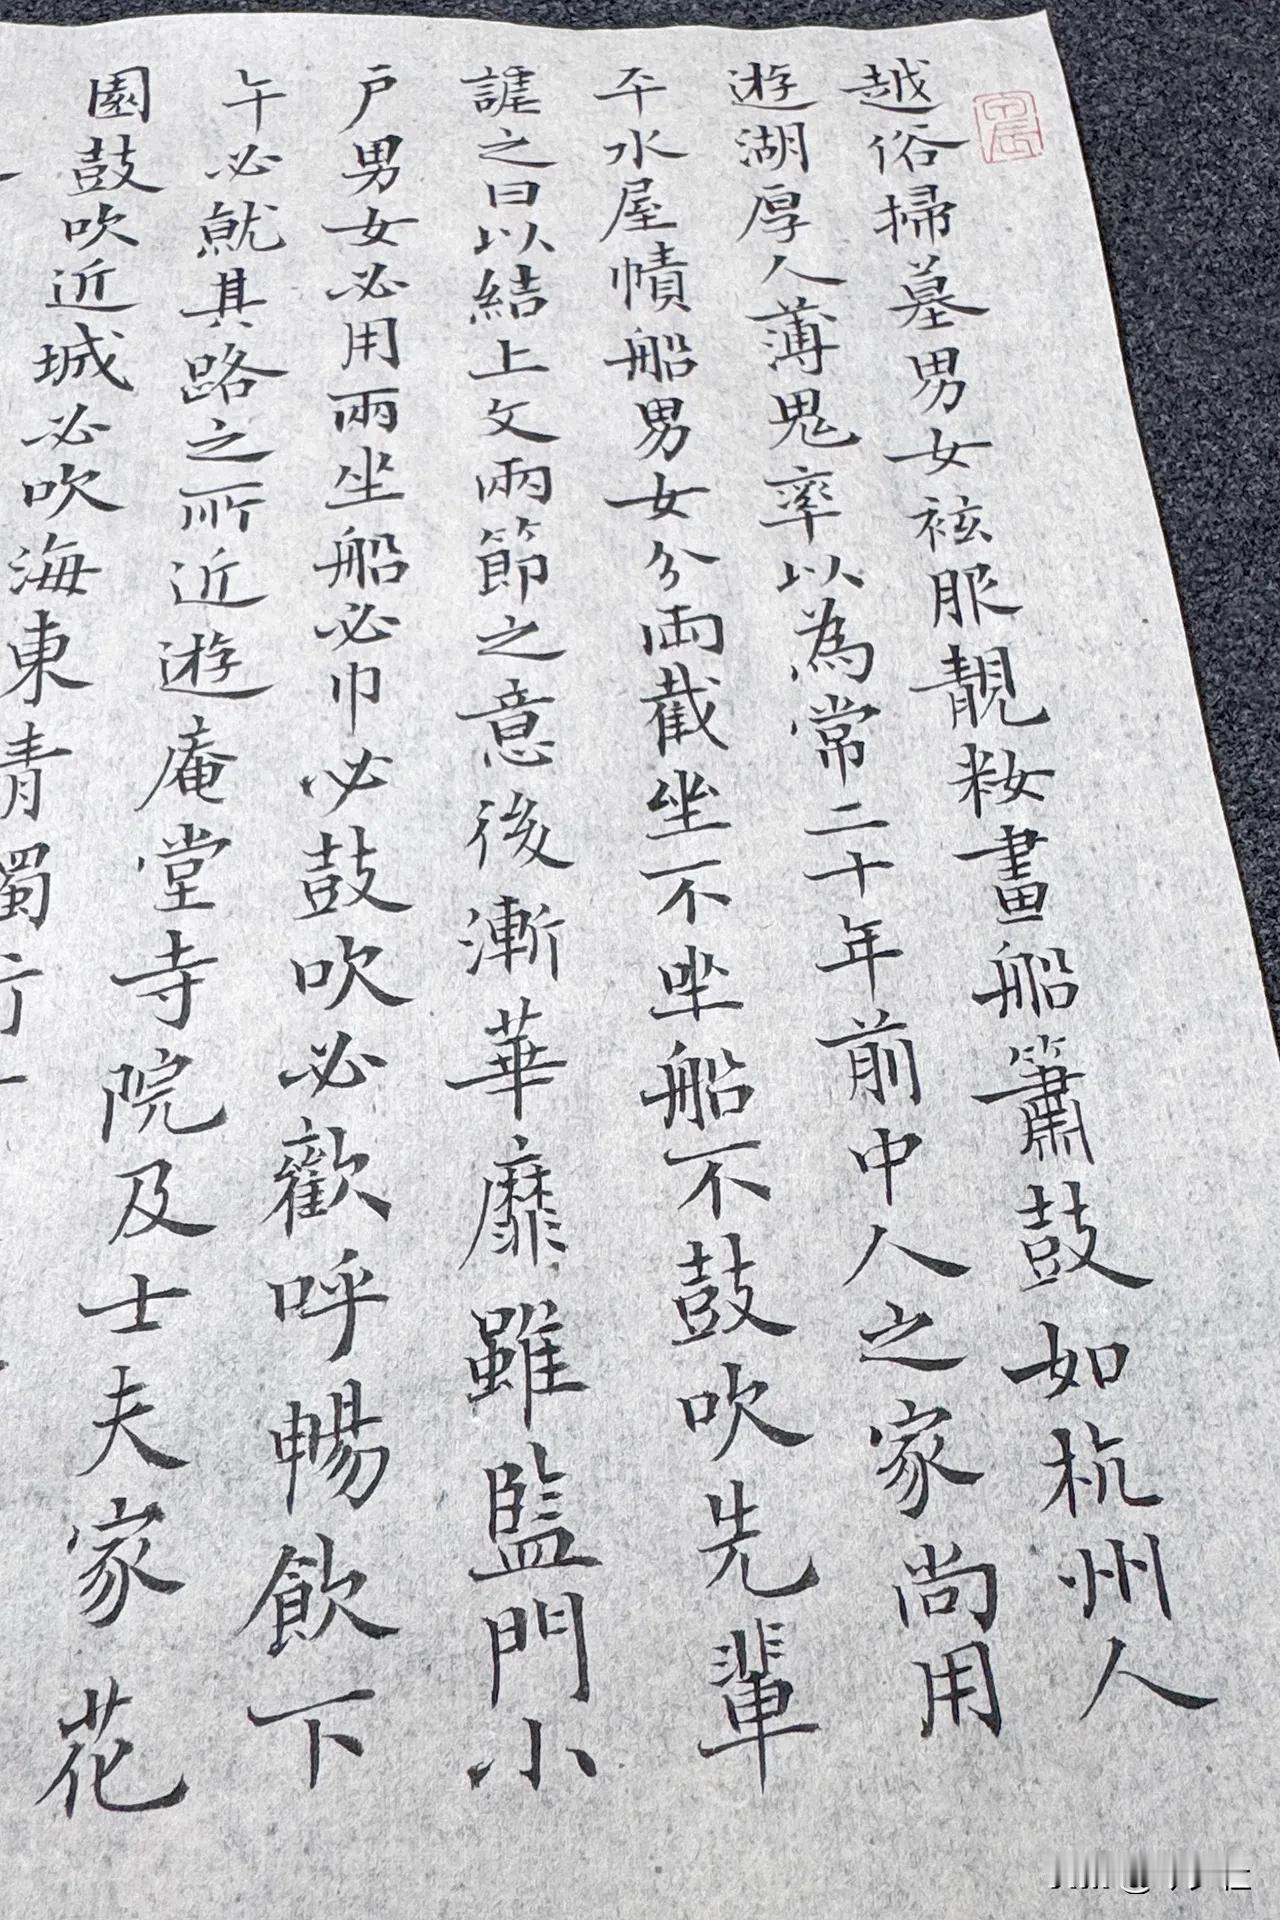 越俗掃墓男女袨服靚粧畫船簫鼓如杭州人
遊湖厚人薄鬼率以為常二十年前中人之家尚用
平水屋幘船男女分兩截坐不坐船不鼓吹先輩
謔之曰以結上文兩節之意後漸華靡雖監門小
戶男女必用兩坐船必巾必鼓吹必歡呼暢飲下
午必就其路之所近遊庵堂寺院及士夫家花
園鼓吹近城必吹海東青獨行